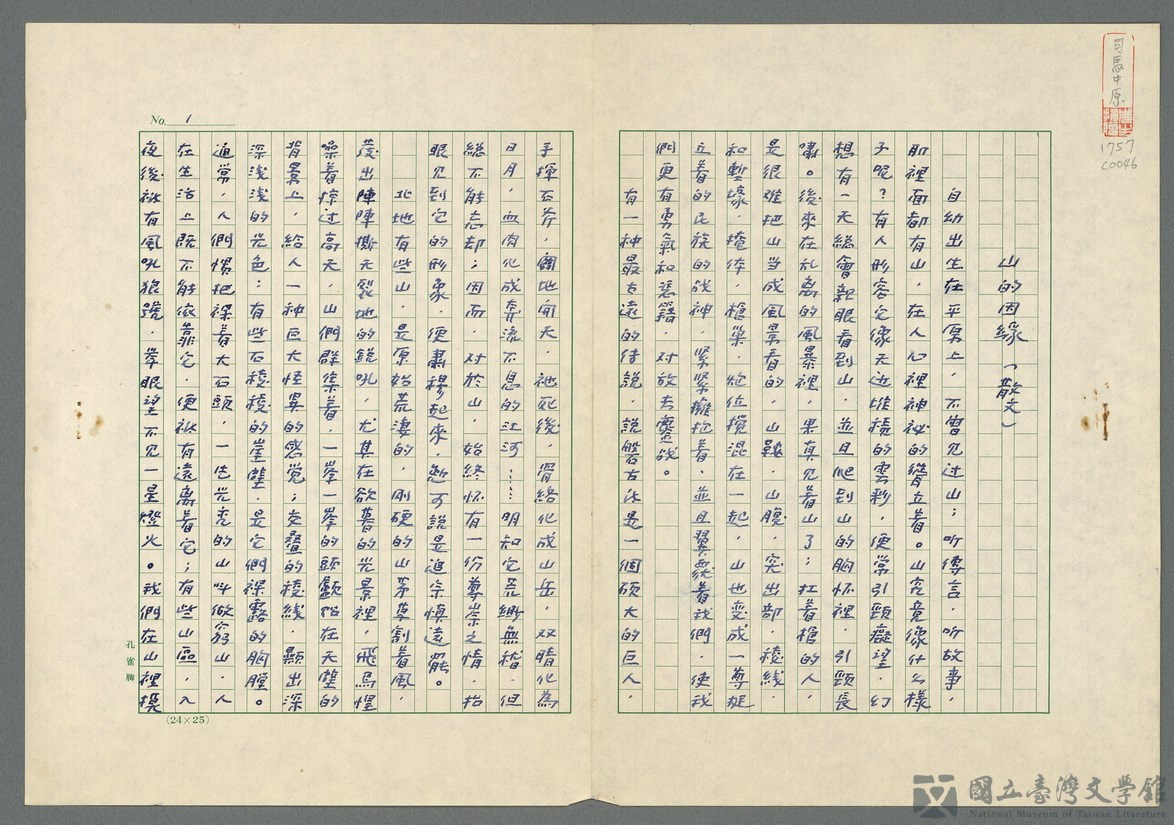 司馬中原
1757
C0046
山的因緣（散文）
自幼出生在平原上，不曾見过山；听傳言，听故事，
前裡面都有山，在人心裡神祕的聳立着。山究竟像什么樣
子呢？有人形容它像天边堆積的雲彩，便常引頸癡望，幻
想有一天總會親眼看到山，並且爬到山的胸怀裡，引頸長
嘯。後來在乱离的風暴裡，果真見着山了；扛着槍的人，
是很难把山当成風景看的，山鞍，山腹，突出部，稜線，
和塹壕，掩体，槍巢，炮位攪混在一起，山也变成一尊挺
立着的民族的战神，緊緊擁抱着，並且翼護着我們，使我
們更有勇氣和憑藉，对敌去奮战。
有一种最古遠的傳說，說盤古氏是一個碩大的巨人，
手揮石斧，闢地開天，祂死後，骨絡化成山岳，双睛化為
日月，血肉化成奔流不息的江河……明知它荒緲無稽，但
總不能忘却；因而，对於山，始終怀有一份尊崇之情，抬
眼見到它的形象，便肅穆起來，恕可說是追宗慎遠罷。
北地有些山，是原始荒凄的，剛硬的山茅尊割着風，
發出陣陣撕天裂地的銳吼，尤其在欲暮的光景裡，飛鳥惶
噪着掠过高天，山們群集着，一峯一峯的頭顱貼在天壁的
背景上，給人一种巨大怪異的感觉；交疊的稜線，顯出深
深浅浅的光色；有些石稜稜的崖壁，是它們裸露的胸膛。
通常，人們慣把裸着大石頭，一生光秃的山叫做窮山，人
在生活上既不能依靠它，便祇有遠离着它；有些山區，入
夜後祇有風吼狼嚎，举眼望不見一星燈火。我們在山裡摸
No. 1
孔雀牌
(24×25)
國立臺灣文學館
National Museum of Taiwan Literature